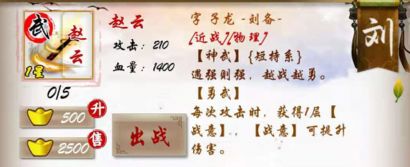 赵云
字 子龙 -刘备-
刘
武
赵云
1星
攻击: 210
血量: 1400
[近战][物理]
【神武】{短持系}
遇强则强, 越战越勇。
【勇武】
每次攻击时, 获得1层【
战意】, 【战意】可提升
伤害。
0/5
500 升
2500 售
出战